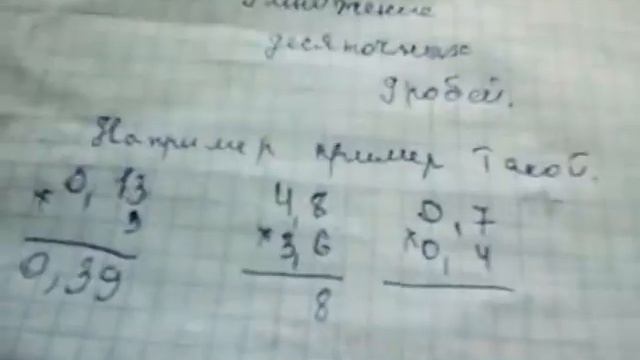 Умножение
десяточных
дробей.
Например пример такой.
0,13 4,8 0,7
× 3 × 3,6 × 0,4
0,39 8